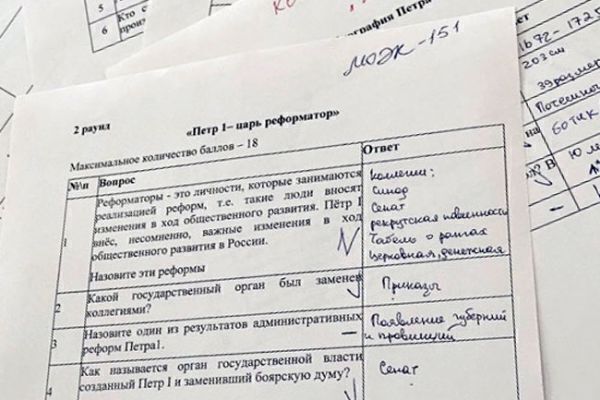 5 Кто с
6 Кто
произ
ография Петра
вет
1672-1725
203 см
39 размер
ботик
МОЭК-151
2 раунд
«Петр I– царь реформатор»
Максимальное количество баллов – 18
№\п Вопрос Ответ
1 Реформаторы - это личности, которые занимаются
реализацией реформ, т.е. такие люди вносят
изменения в ход общественного развития. Пётр I
внёс, несомненно, важные изменения в ход
общественного развития в России.
Назовите эти реформы
коллегии;
Синод
Сенат
рекрутская повинность
Табель о рангах
церковная, денежная
2 Какой государственный орган был заменен
коллегиями?
Приказы
3 Назовите один из результатов административных
реформ Петра1.
Появление губерний
и провинций
4 Как называется орган государственной власти
созданный Петр I и заменивший боярскую думу?
Сенат